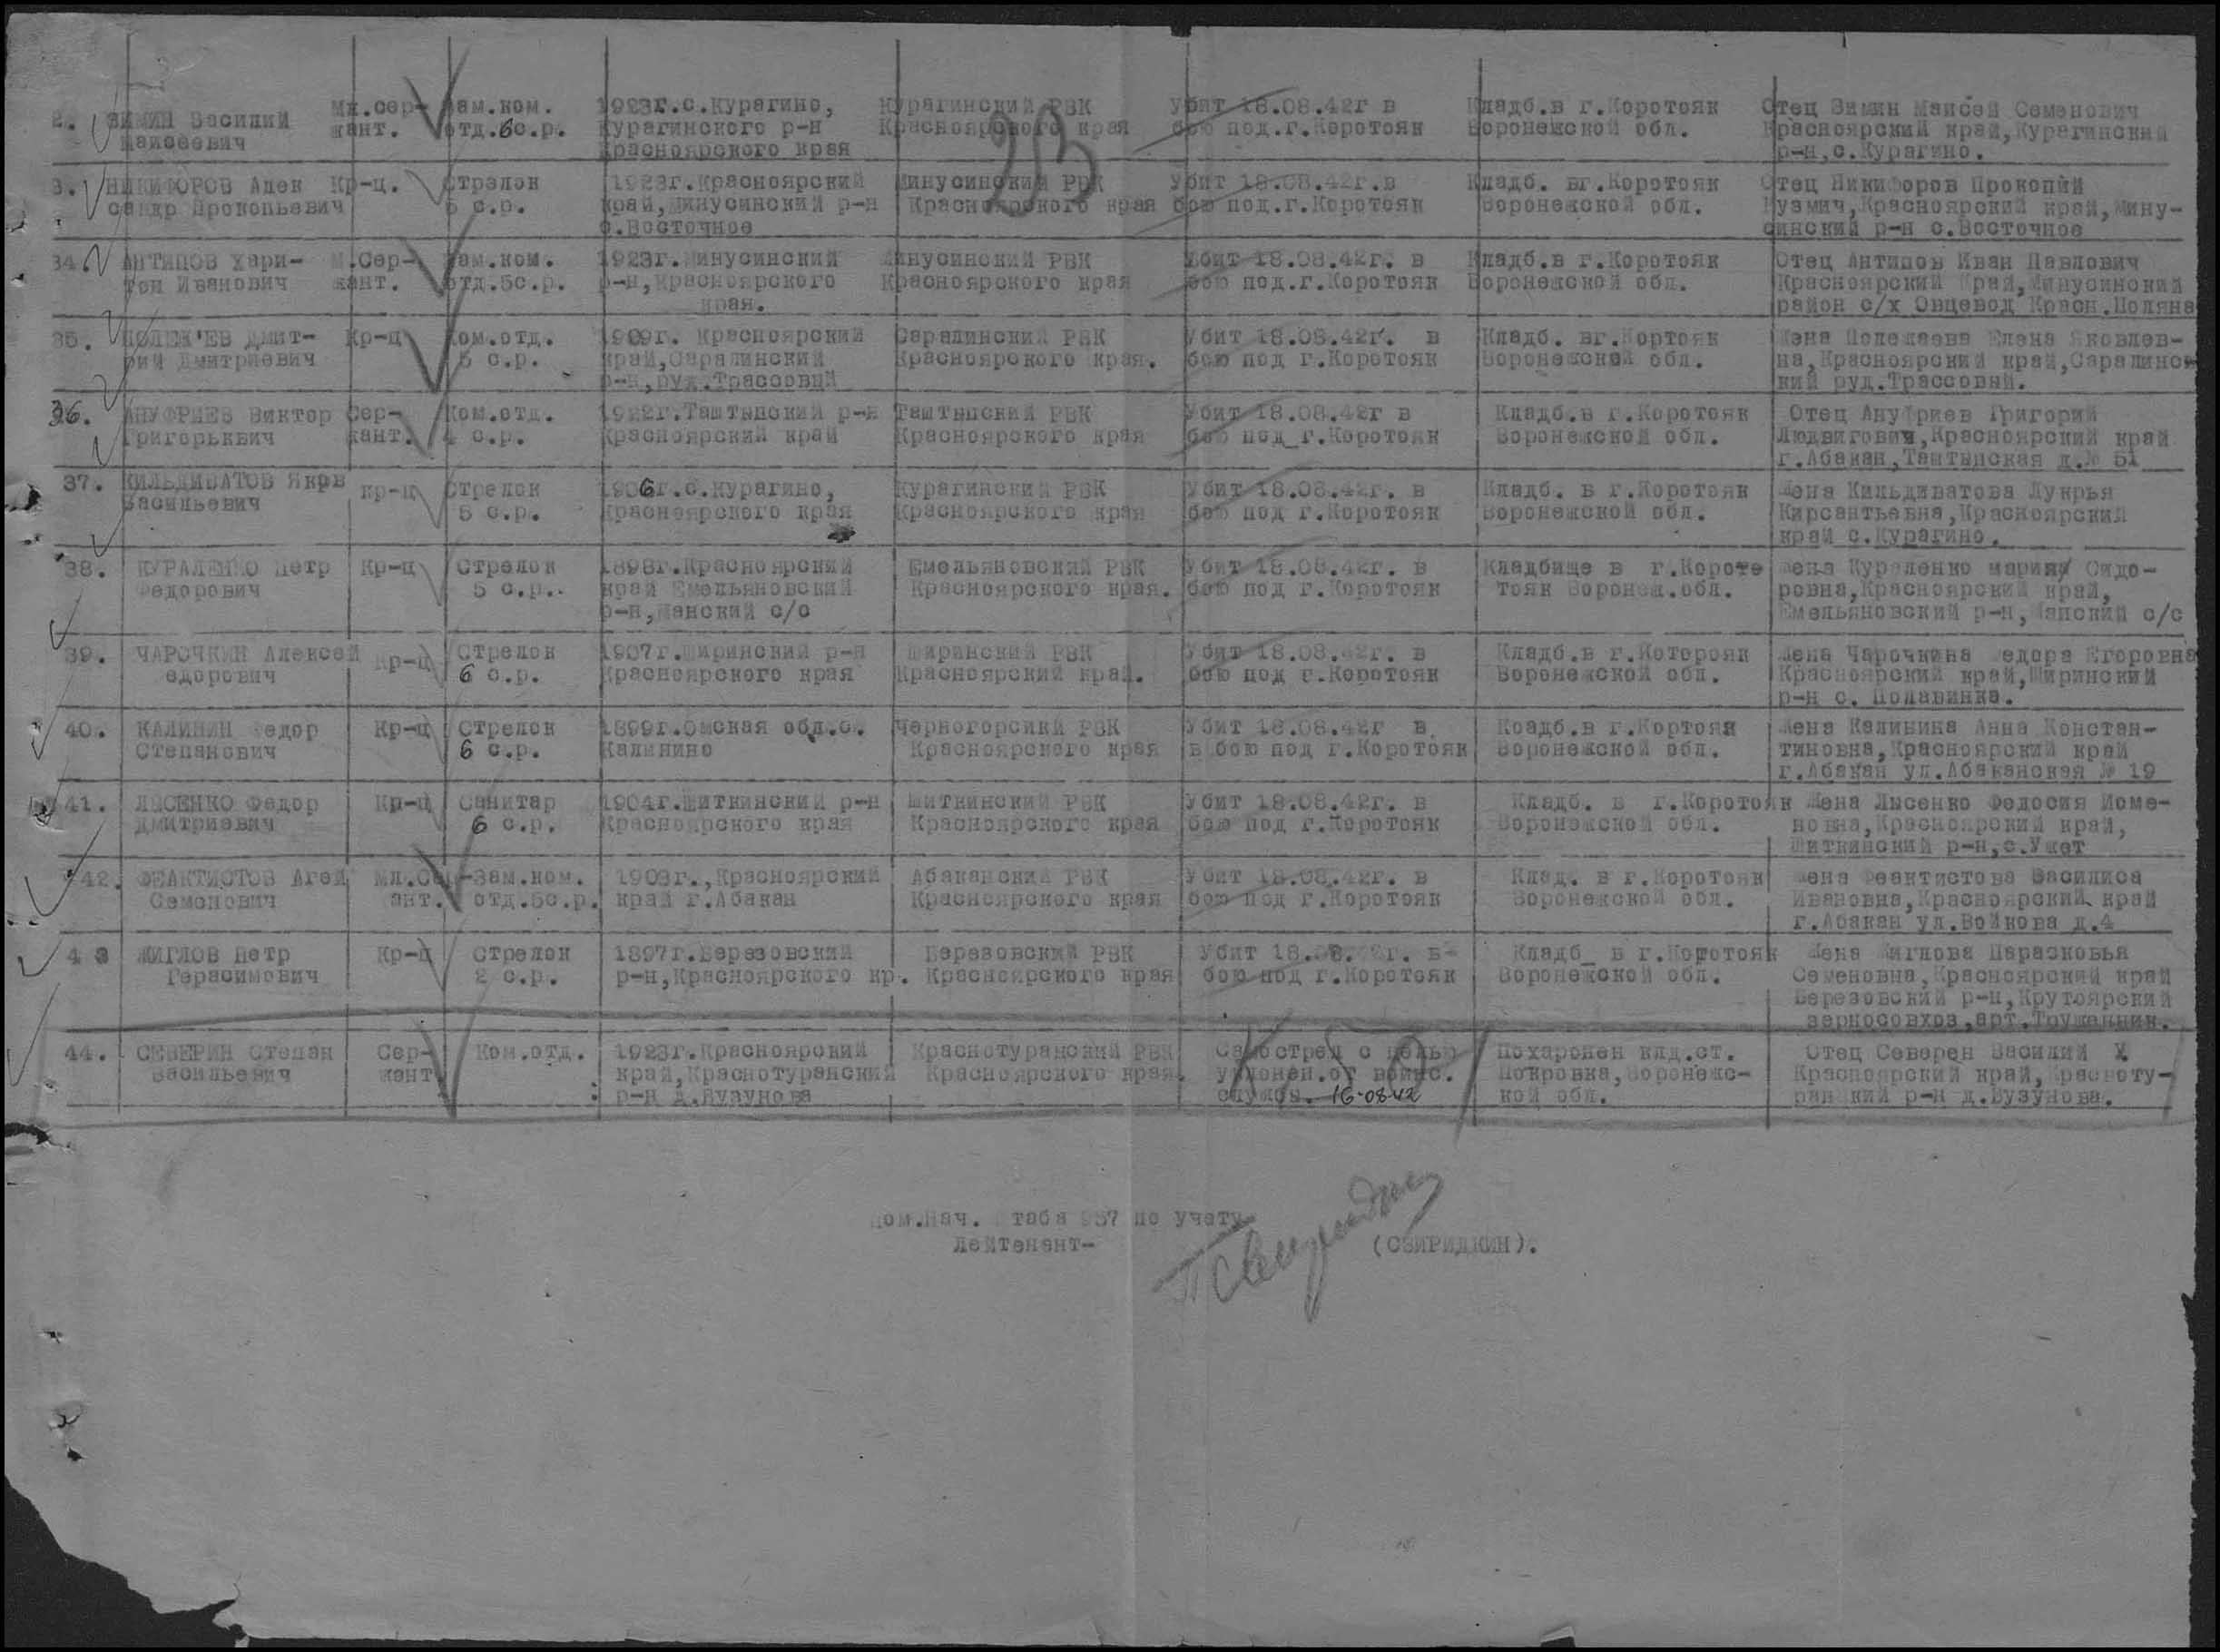 23
2. ЗИМИН Василий Мл.сер- Зам.ком. 1923г.с.Курагино, Курагинский РВК Убит 18.08.42г в Кладб.в г.Коротояк Отец Зимин Маисей Семенович
Маисеевич жант. отд.6с.р. Курагинского р-н Красноярского края бою под.г.Коротояк Воронежской обл. Красноярский край,Курагинский
Красноярского края р-н,с.Курагино.
3. НИКИФОРОВ Алек Кр-ц. Стрелок 1923г.Красноярский Минусинский РВК Убит 18.08.42г.в Кладб. вг.Коротояк Отец Никифоров Прокопий
сандр Прокопьевич 5 с.р. край,Минусинский р-н Красноярского края бою под.г.Коротояк Воронежской обл. Кузмич,Красноярский край,Мину-
с.Восточное синский р-н с.Восточное
34. АНТИПОВ Хари- М.Сер- Зам.ком. 1923г.Минусинский Минусинский РВК Убит 18.08.42г. в Кладб.в г.Коротояк Отец Антипов Иван Павлович
тон Иванович жант. отд.5с.р. р-н,Красноярского Красноярского края бою под.г.Коротояк Воронежской обл. Красноярский Край,Минусинский
края. район с/х Овцевод Красн.Поляна
35. ПОЛЕЖ'ЕВ Дмит- Кр-ц Ком.отд. 1909г. Красноярский Саралинский РВК Убит 18.08.42г. в Кладб. вг.Кортояк Жена Полежаева Елена Яковлев-
рий Дмитриевич 5 с.р. край,Саралинский Красноярского края. бою под г.Коротояк Воронежской обл. на,Красноярский край,Саралинс
р-н,руд.Трассовый кий руд.Трассовый.
36. АНУФРИЕВ Виктор Сер- Ком.отд. 1922г.Таштыпский р-н Таштыпский РВК Убит 18.08.42г в Кладб.в г.Коротояк Отец Ануфриев Григорий
Григорьквич жант. 4 с.р. Красноярский край Красноярского края бою под г.Коротояк Воронежской обл. Людвигович,Красноярский край
г.Абакан,Таштыпская д.№ 51
37. КИЛЬДИВАТОВ Яков кр-ц Стрелок 1906г.с.Курагино, Курагинский РВК Убит 18.08.42г. в Кладб. в г.Коротояк Жена Кильдиватова Лукрья
Васильевич 5 с.р. Красноярского края Красноярского края бою под г.Коротояк Воронежской обл. Кирсантьевна,Красноярский
край с.Курагино.
38. КУРАЛЕНКО Петр Кр-ц Стрелок 1898г.Красноярский Емельяновский РВК Убит 18.08.42г. в Кладбище в г.Короте Жена Кураленко мария Сидо-
Федорович 5 с.р. край Емельяновский Красноярского края. бою под г.Коротояк тояк Воронеж.обл. ровна,Красноярский край,
р-н,Манский с/с Емельяновский р-н,Манский с/с
39. ЧАРОЧКИН Алексей Кр-ц Стрелок 1907г.Ширинский р-н Ширинский РВК Убит 18.08.42г. в Кладб.в г.Котороян Жена Чарочкина Федора Егоровна
Федорович 6 с.р. Красноярского края Красноярский край. бою под г.Коротояк Воронежской обл. Красноярский край,Ширинский
р-н с. Полавинка.
40. КАЛИНИН Федор Кр-ц Стрелок 1899г.Омская обл.с. Черногорсикй РВК Убит 18.08.42г в Коадб.в г.Кортояк Жена Калинина Анна Констан-
Степанович 6 с.р. Калинино Красноярского края в бою под г.Коротояк Воронежской обл. тиновна,Красноярский край
г.Абакан ул.Абакановая № 19
41. ЛЫСЕНКО Федор Кр-ц Санитар 1904г.Шиткинский р-н Шиткинский РВК Убит 18.08.42г. в Кладб. в г.Коротояк Жена Лысенко Федосия Йоме-
Дмитриевич 6 с.р. Красноярского края Красноярского края бою под г.Коротояк Воронежской обл. новна,Красноярский край,
Шиткинский р-н,с.Ужет
42. ФЕАКТИСТОВ Агей Мл.Сер-Зам.ком. 1903г.,Красноярский Абаканский РВК Убит 18.08.42г. в Клад. в г.Коротояк Жена Феактистова Василиса
Семенович жант. отд.5с.р. край г.Абакан Красноярского края бою под г.Коротояк Воронежской обл. Ивановна,Красноярский край
г.Абакан ул.Войкова д.4
43 ЖИГЛОВ Петр Кр-ц Стрелок 1897г.Березовский Березовский РВК Убит 18.08.42г. в- Кладб_ в г.Коротояк Жена Жиглова Парасковья
Герасимович 2 с.р. р-н,Красноярского кр. Красноярского края бою под г.Коротояк Воронежской обл. Семеновна,Красноярский край
Березовский р-н,Крутоярский
зерносовхоз,арт.
44. СЕВЕРИН Степан Сер- Ком.отд. 1923г.Красноярский Краснотуранский РВК Самострел с целью Похаронен клд.ст. Отец Северен Василий X
Васильевич жант край,Краснотуранский Красноярского края. уклонен.от воинс. Покровка,Воронежс- Красноярский край,Красноту-
р-н д.Бузунова службы. 16.08.42 кой обл. ранский р-н д.Бузунова.
Пом.Нач. Штаба 957 по учету
Лейтенант- (СВИРИДКИН).